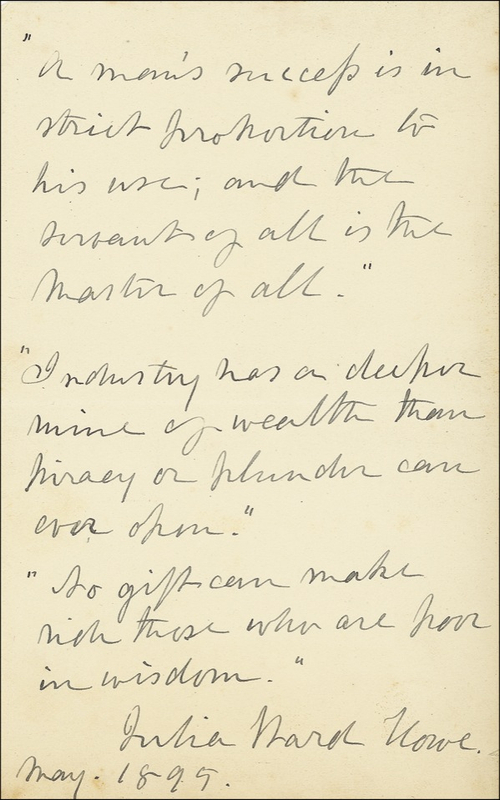 "A man's success is in
strict proportion to
his use; and the
servant of all is the
Master of all."
"Industry has a deeper
mine of wealth than
piracy or plunder can
ever open."
"No gift can make
rich those who are poor
in wisdom."
Julia Ward Howe.
May. 1895.